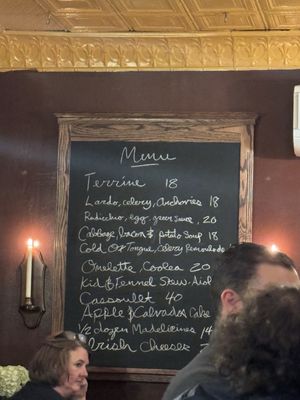 Menu
Terrine 18
Lardo, celery, Anchovies 18
Radicchio, egg, green sauce, 20
Cabbage, bacon & potato Soup 18
Cold Ox Tongue, Celery Remoulade
Omelette, Coolea 20
Kid & Fennel Stew, Aioli
Cassoulet 40
Apple & Calvados Cake
1/2 dozen Madeleines 14
Irish Cheeses